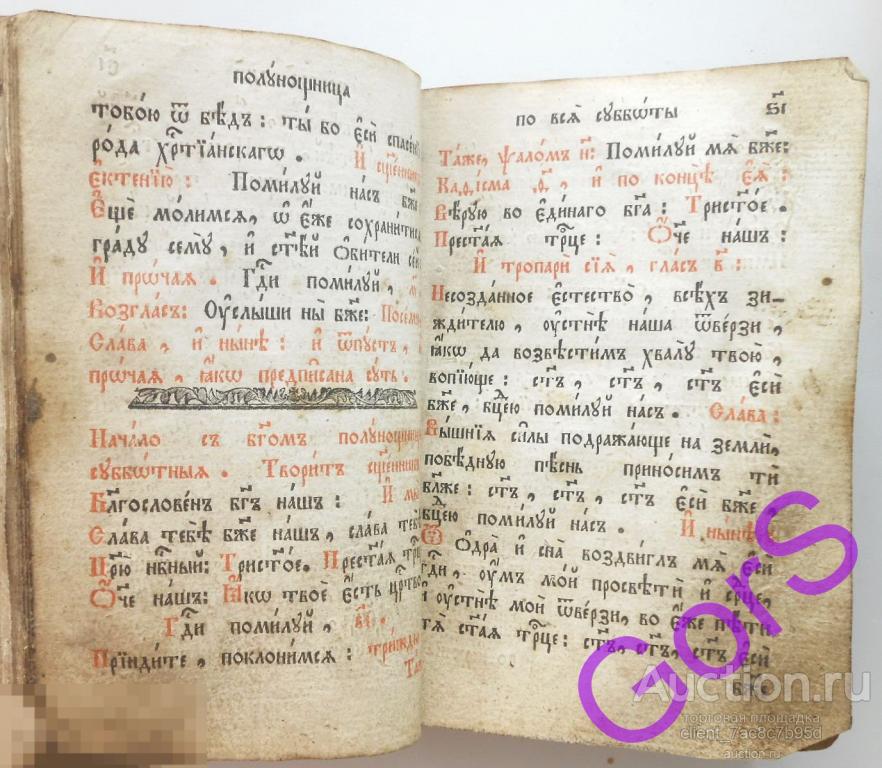 полꙋ́нощница
тобо́ю ѿ бѣ́дъ: ты́ бо є҆сѝ спасе́нїе
ро́да хрⷭ҇тїа́нскагѡ.
Є҆ктенїю̀: Поми́лꙋй на́съ бж҃е
Є҆щѐ мо́лимсѧ, ѡ҆ є҆́же сохрани́тисѧ
гра́дꙋ семꙋ̀, и҆ ст҃ѣ́й ѻ҆би́тели се́й
И҆ прѡ́чаѧ. Гдⷭ҇и поми́лꙋй,
Возгла́съ: Оу҆слы́ши ны̀ бж҃е:
Сла́ва, и҆ ны́нѣ: и҆ ѿпꙋ́стъ, и҆
прѡ́чаѧ, ꙗ҆́кѡ предпи́сана сꙋ́ть.
Нача́ло съ бг҃омъ полꙋ́нощницы
сꙋббѡ́тныѧ. Твори́тъ сщ҃е́нникъ
Блгⷭ҇ове́нъ бг҃ъ на́шъ: И҆ мы̀
Сла́ва тебѣ̀ бж҃е на́шъ, сла́ва тебѣ̀
Цр҃ю̀ нбⷭ҇ный: Трист҃о́е. Прест҃а́ѧ трⷪ҇це
Ѻ҆́ч҃е на́шъ: Ꙗ҆́кѡ твоѐ є҆́сть црⷭ҇тво
Гдⷭ҇и поми́лꙋй, в҃і.
Прїиди́те, поклони́мсѧ: три́жды
по всѧ̑ сꙋббѡ́ты
Та́же, ѱало́мъ н҃: Поми́лꙋй мѧ̀ бж҃е:
Каѳі́сма ѳ҃, и҆ по концѣ̀ є҆ѧ̀:
Вѣ́рꙋю во є҆ди́наго бг҃а: Трист҃о́е.
Прест҃а́ѧ трⷪ҇це: Ѻ҆́ч҃е на́шъ:
И҆ тропарѝ сїѧ̑, гла́съ в҃:
Несозда́нное є҆стество̀, всѣ́хъ зи-
жди́телю, оу҆стнѣ̀ на́ша ѿве́рзи,
ꙗ҆́кѡ да возвѣсти́мъ хвалꙋ̀ твою̀,
вопїю́ще: ст҃ъ, ст҃ъ, ст҃ъ є҆сѝ
бж҃е, бцⷣею поми́лꙋй на́съ. Сла́ва:
Вы́шнїѧ си̑лы подража́юще на землѝ,
побѣ́днꙋю пѣ́снь прино́симъ тѝ
бл҃же: ст҃ъ, ст҃ъ, ст҃ъ є҆сѝ бж҃е,
бцⷣею поми́лꙋй на́съ. И҆ ны́нѣ:
Ѿ ѻ҆дра̀ и҆ сна̀ воздви́глъ мѧ̀ є҆сѝ
гдⷭ҇и, оу҆́мъ мо́й просвѣтѝ и҆ срⷣце,
и҆ оу҆стнѣ̀ моѝ ѿве́рзи, во є҆́же пѣ́ти
тѧ̀ ст҃а́ѧ трⷪ҇це: ст҃ъ, ст҃ъ, ст҃ъ є҆сѝ
бж҃е
GorS
Auction.ru
торговая площадка
client_7ac8c7b95d
auction.ru